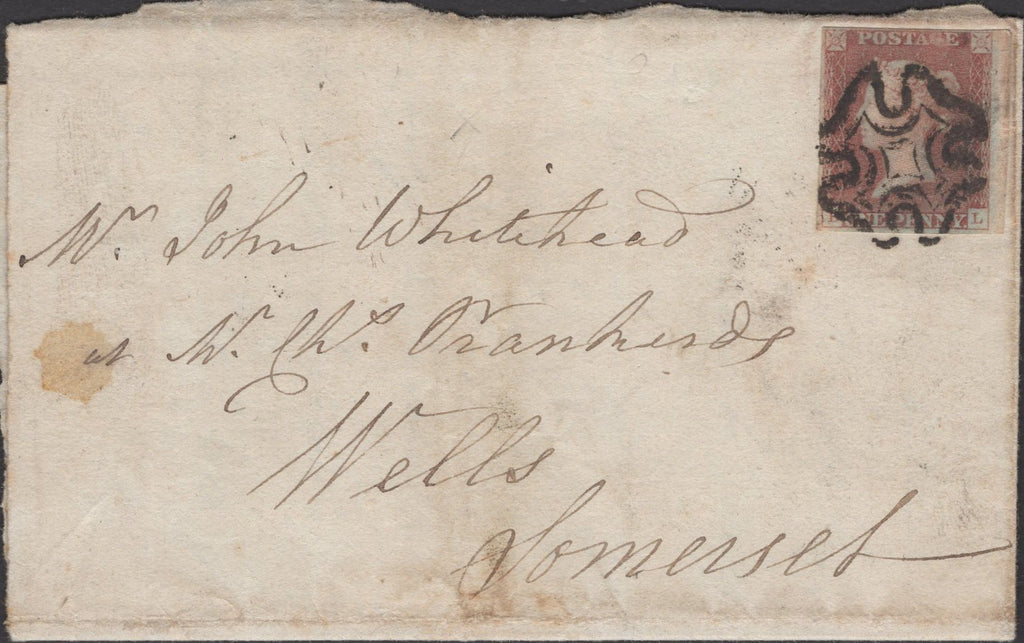 POSTAGE
ONE PENNY.
L
Mr. John Whitehead
at Mr. Chs.
Wells
Somerset